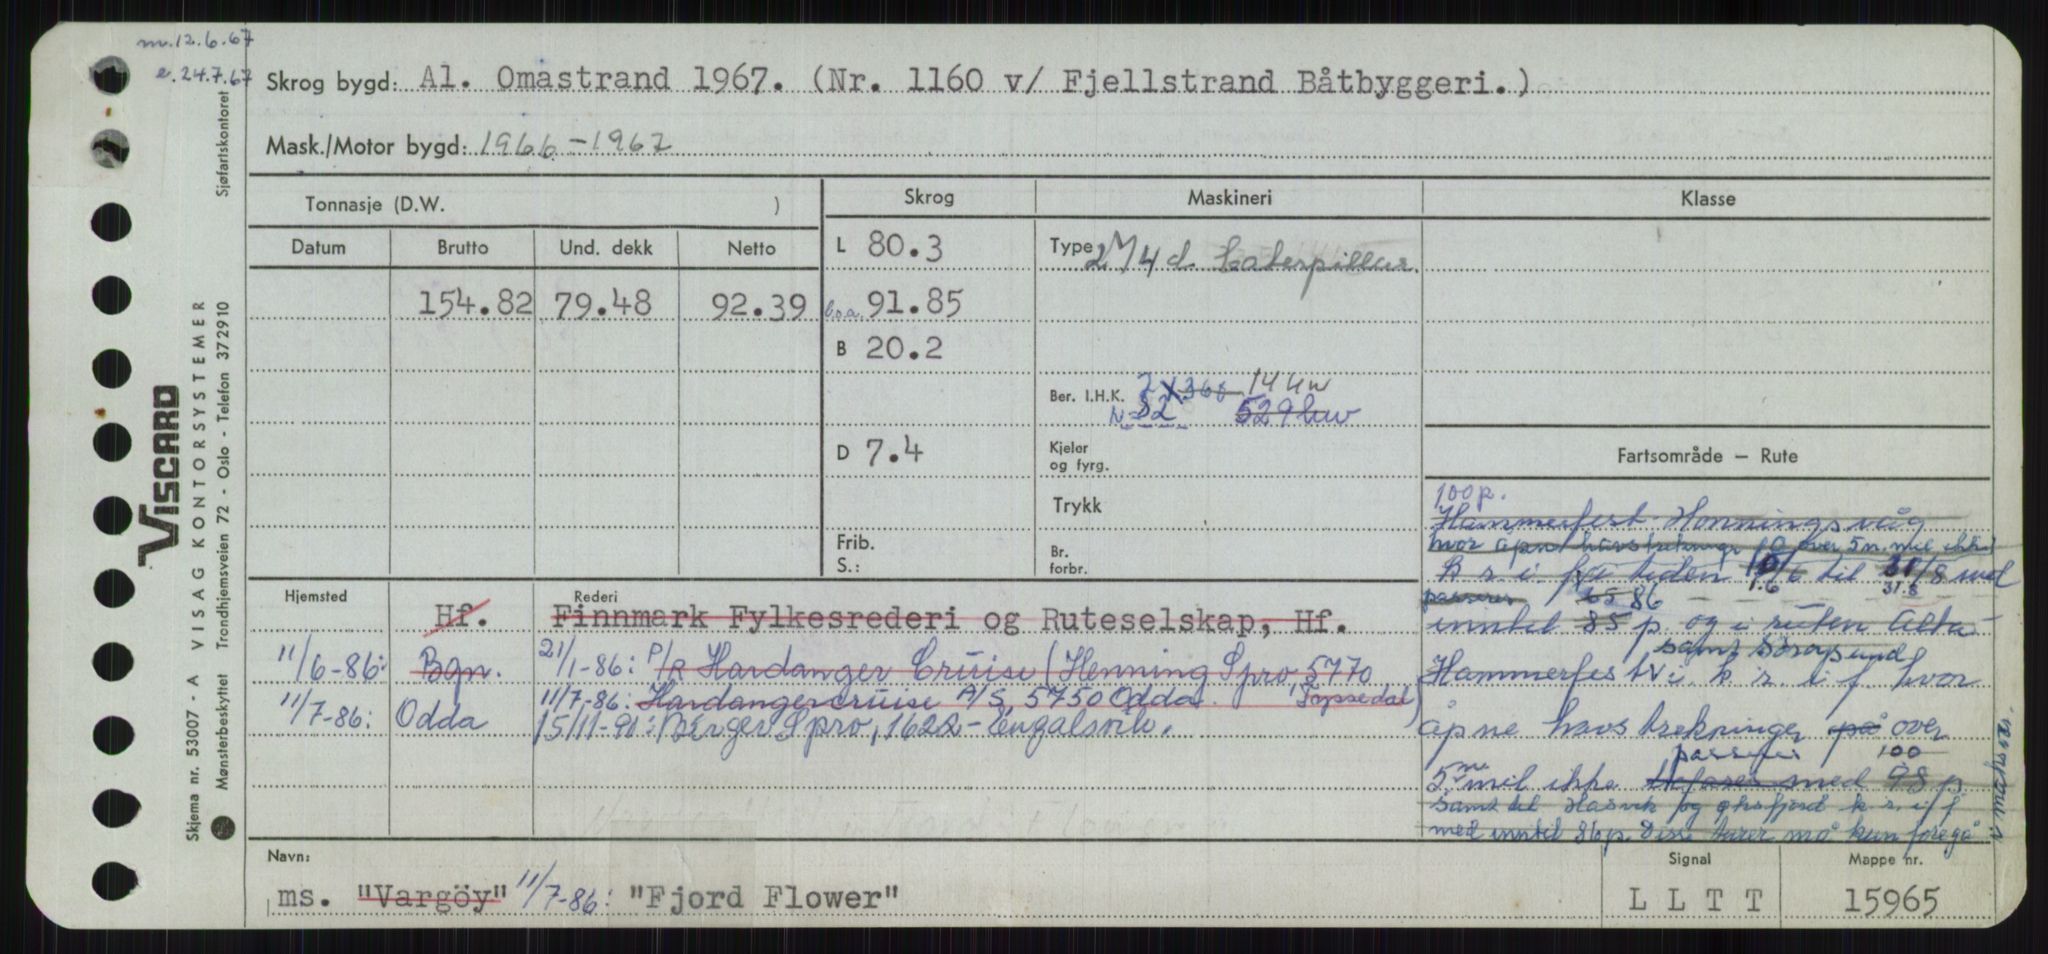 m. 12.6.67
e. 24.7.67
Skrog bygd: Al. Omastrand 1967. (Nr. 1160 v/ Fjellstrand Båtbyggeri.)
Mask./Motor bygd: 1966-1967
Sjøfartskontoret
Tonnasje (D.W. )
Skrog
Maskineri
Klasse
Datum Brutto Und. dekk Netto
154.82 79.48 92.39
L 80.3
b.o.a. 91.85
B 20.2
D 7.4
Frib.
S.:
Type 2 4 d Caterpillar.
Ber. I.H.K. 2 X 368
N=82 529 kw
Kjeler
og fyrg.
Trykk
Br.
forbr.
Fartsområde — Rute
100 p.
Hammerfest-Honningsvåg
hvor åpne havstrekninger over 5 n. mil ikke
k r. i f i tiden til 31/8 med
1.6 31.8
passeres 86
inntil 85 p. og i ruten Alta-
samt Sörøysund
Hammerfest k r. i f. hvor
åpne havstrekninger på over
passeres 100
5 mil ikke befares med 98 p.
samt til Hasvik og Øksfjord k r. i f
med inntil 86 p. Disse turer må kun foregå
Hjemsted Rederi
Hf. Finnmark Fylkesrederi og Ruteselskap, Hf.
11/6-86: Bgn. 21/1-86: P/R Hardanger Cruise (Henning Spro, 5770
Tyssedal)
11/7-86: Odda 11/7-86: Hardangercruise A/S, 5750 Odda.
15/11-90: Birger Spro, 1622-Engalsvik.
Navn:
ms. "Vargöy" 11/7-86: "Fjord Flower"
Signal
L L T T
Mappe nr.
15965
VISCARD
VISAG KONTORSYSTEMER
Skjema nr. 53007 - A
Mønsterbeskyttet Trondhjemsveien 72 - Oslo - Telefon 372910